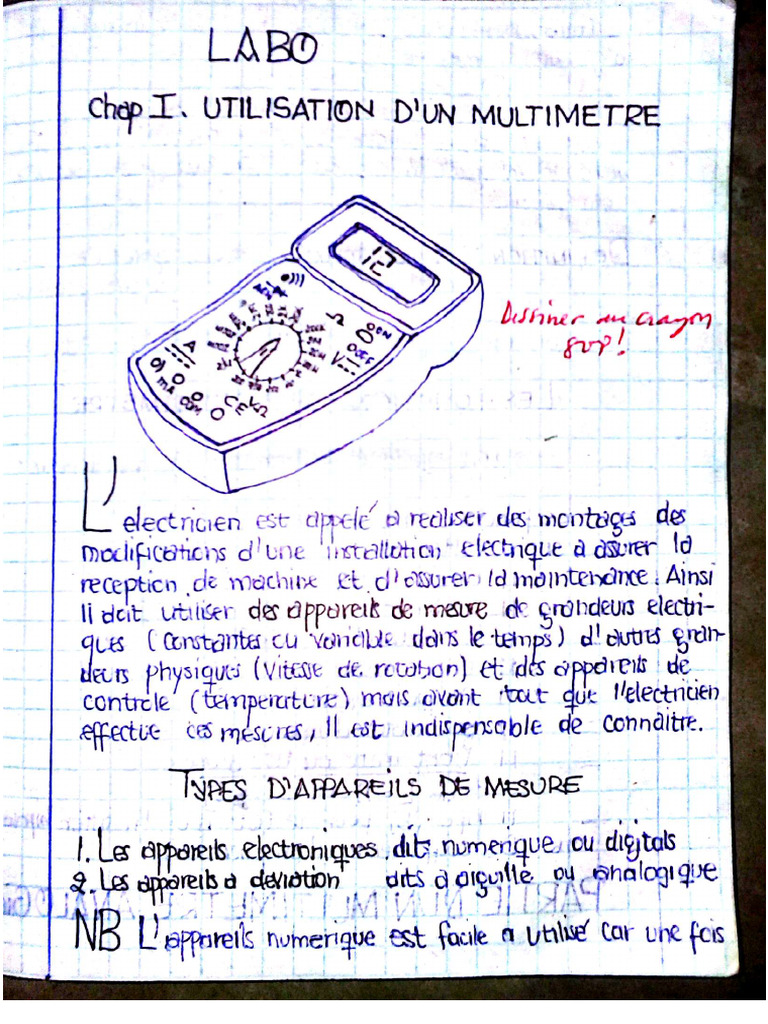 LABO
Chap I. UTILISATION D'UN MULTIMETRE
12
Ω
OON
OOFF
V
A
mA
COM
CE
VΩ
Dessiner au crayon
svp!
L'electricien est appelé a realiser des montages des
modifications d'une installation electrique a assurer la
reception de machine et d'assurer la maintenance. Ainsi
Il doit utiliser des appareils de mesure de grandeurs electri-
ques (constantes ou variable dans le temps) d'autres gran-
deurs physiques (vitesse de rotation) et des appareils de
controle (temperature) mais avant tout que l'electricien
effectue ces mesures, Il est indispensable de connaitre.
TYPES D'APPAREILS DE MESURE
1. Les appareils electroniques dit numerique ou digitals
2. Les appareils a deviation dits a aiguille ou analogique
NB L'appareils numerique est facile a utilisé car une fois